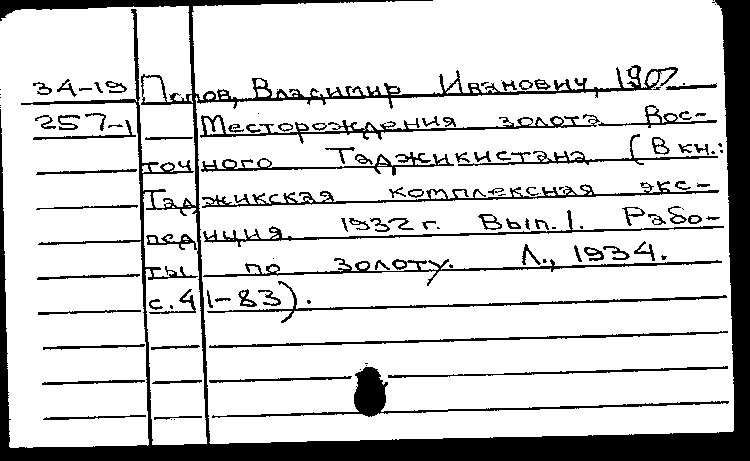 34-19 Попов, Владимир Иванович, 1907.
257-1 Месторождения золота Вос-
точного Таджикистана (В кн.:
Таджикская комплексная экс-
педиция. 1932 г. Вып. 1. Рабо-
ты по золоту. Л., 1934.
с. 41-83).